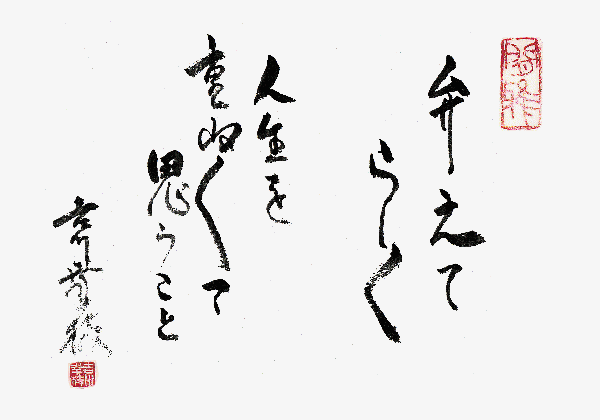 弁えて
らしく
人生を
重ね〱て
思うこと